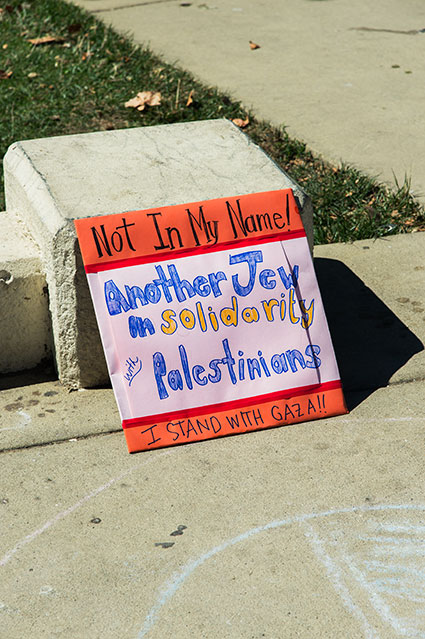 Not In My Name!
Another Jew
in solidarity
with
Palestinians
I STAND WITH GAZA!!